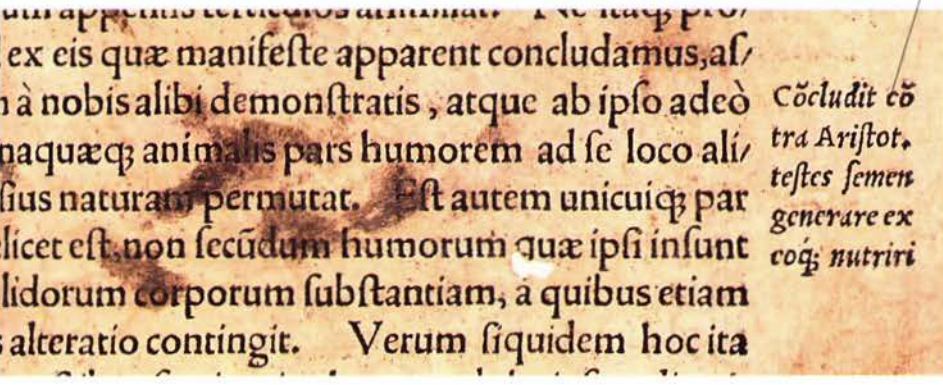 ex eis quæ manifeſte apparent concludamus,aſ/
à nobis alibi demonſtratis, atque ab ipſo adeò
naquæqꝫ animalis pars humorem ad ſe loco ali/
ſius naturam permutat. Eſt autem unicuiqꝫ par
licet eſt, non ſecūdum humorum quæ ipſi inſunt
lidorum corporum ſubſtantiam, à quibus etiam
alteratio contingit. Verum ſiquidem hoc ita
Cõcludit cõ
tra Ariſtot.
teſtes ſemen
generare ex
coq́ꝫ nutriri